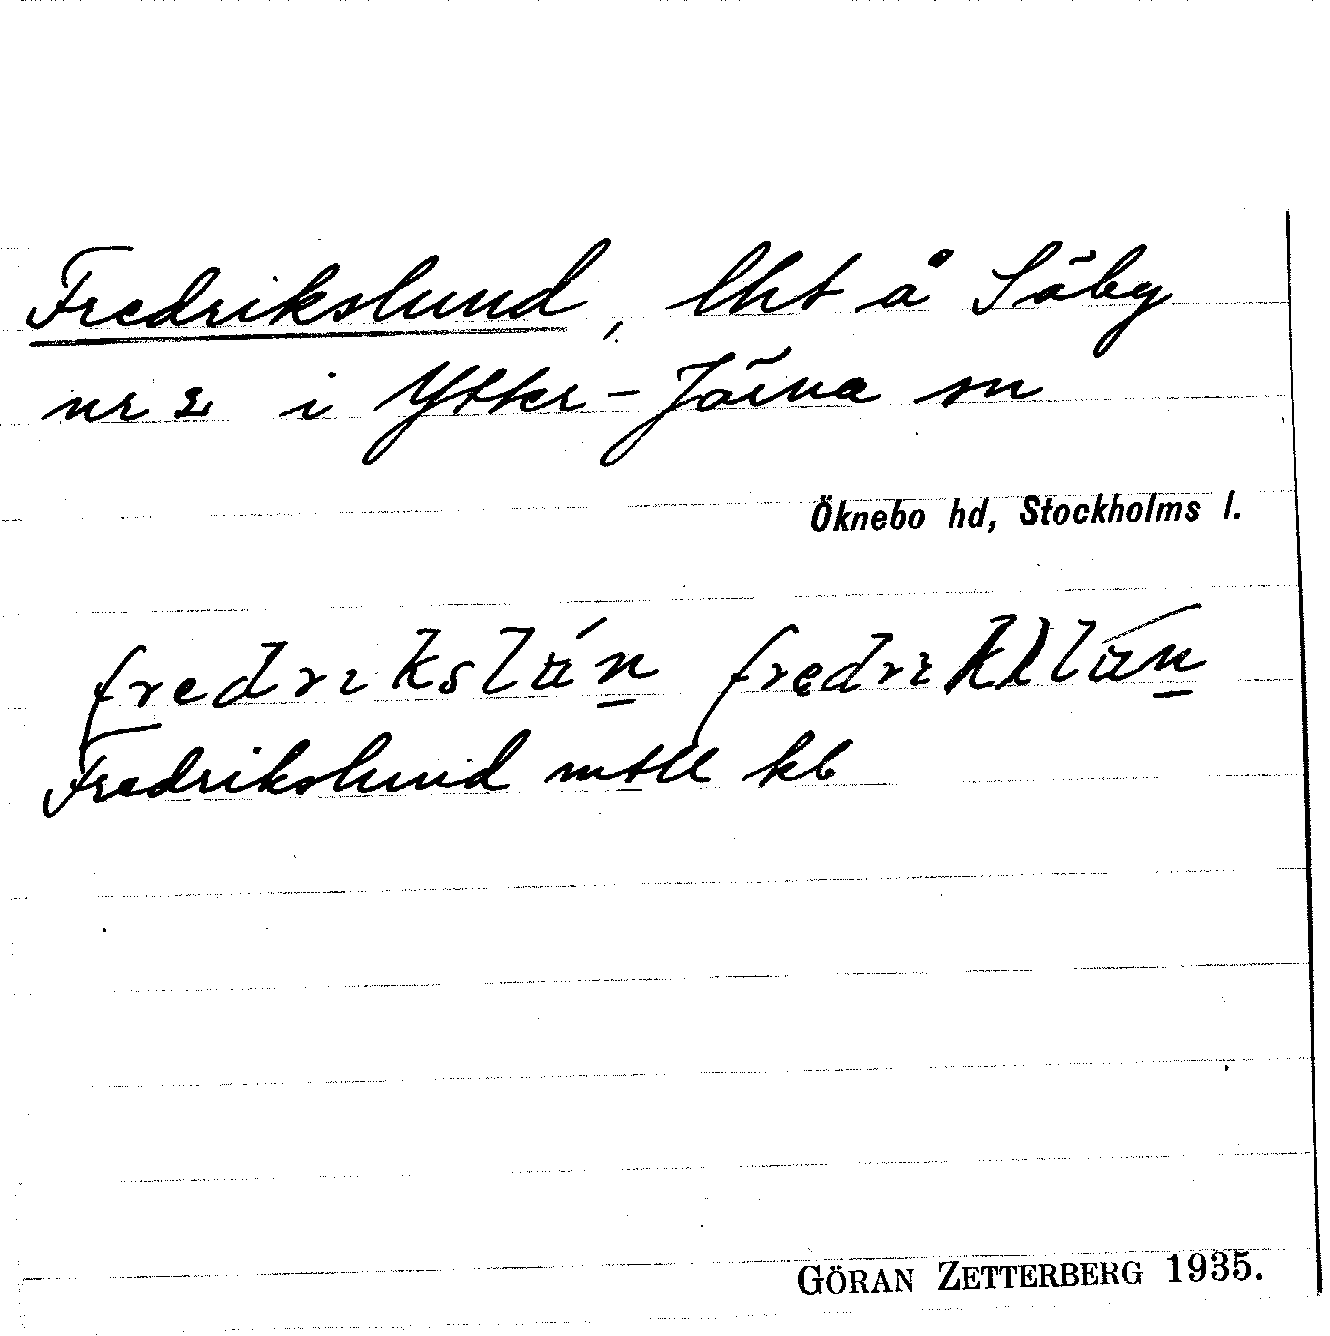 Fredrikslund, lht å Säby
nr 2 i Ytter-Järna sn
Öknebo hd, Stockholms l.
Fredrikslund mtll kb
GÖRAN ZETTERBERG 1935.